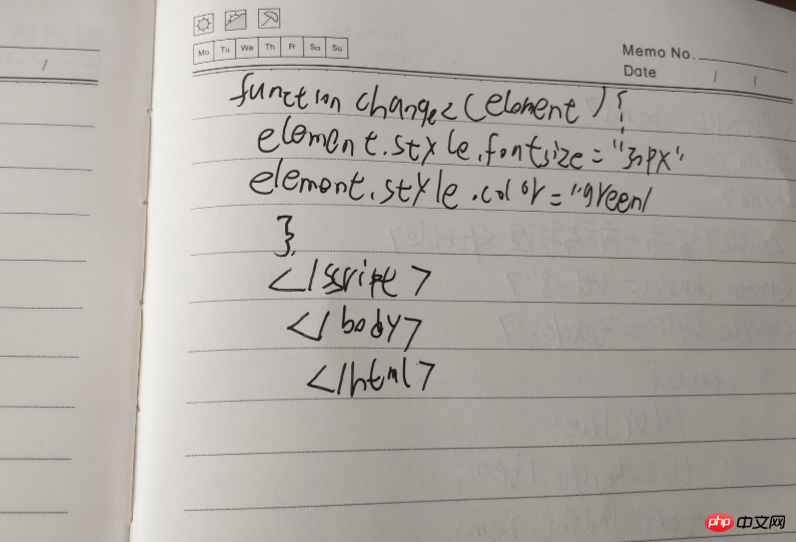 Mo Tu We Th Fr Sa Su
Memo No.
Date / /
function change2(element) {
element.style.fontsize="30px"
element.style.color="green/
}
</script>
</body>
</html>
php 中文网